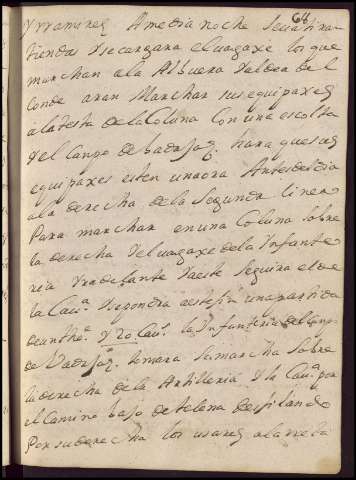 64
Yrramirez Amedia noche sevatiran
tiendas Ysecargara elvagaxe los que
marchan ala Albuera Yaldea del
Conde aran Marchar susequipaxes
alatesta dela Coluna Con una escolta
Yel Canpo de badajoz hara quesus
equipaxes esten unaora Antes del dia
ala derecha dela Segunda linea
Para marchar en una Coluna sobre
la derecha Yelvagaxe dela Ynfante
ria Yradelante Yaeste seguira elde
la Cavª Yse pondra aeste fin una partida
deynfheª Y 20 Cavˢ la Ynfanteria del Canpo
de Vadajoz tomara sumarcha Sobre
la derecha dela Artilleria Y la Cavª por
el Camino bajo de telena desfilando
Por su derecha los usares ala